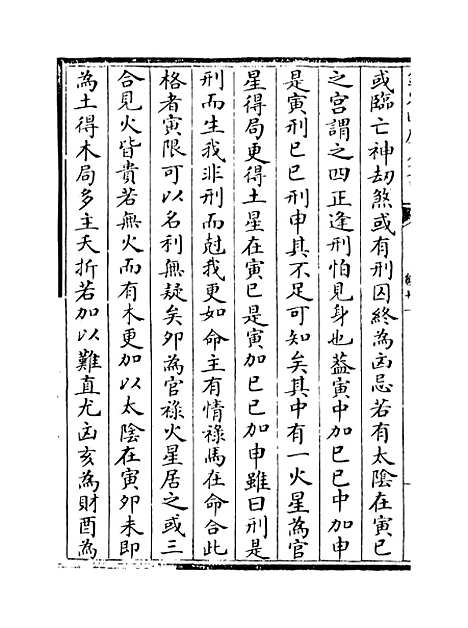 或臨亡神劫煞或有刑囚終為凶忌若有太陰在寅巳
之宮謂之四正逢刑怕見身也葢寅中加巳巳中加申
是寅刑巳巳刑申其不足可知矣其中有一火星為官
星得局更得土星在寅巳是寅加巳巳加申雖曰刑是
刑而生我非刑而尅我更如命主有情祿馬在命合此
格者寅限可以名利無疑矣夘為官祿火星居之或三
合見火皆貴若無火而有木更加以太陰在寅夘未即
為土得木局多主夭折若加以難直尤凶亥為財酉為